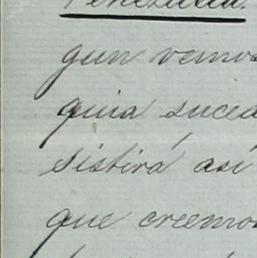 Venezuela.
gun vemos
quia suced
sistirá así
que creemos